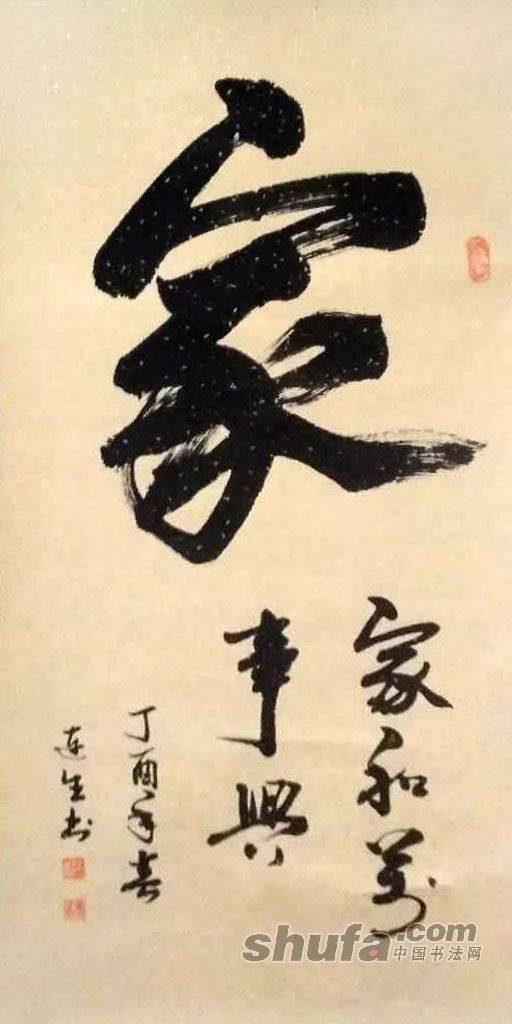 家
家和萬
事興
丁酉年春
连生书
shufa.com
中国书法网